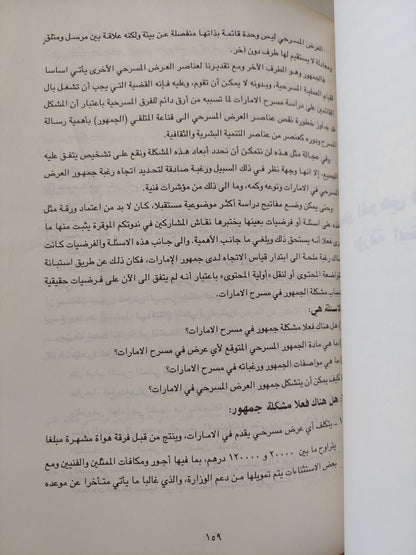 العرض المسرحي ليس وحدة قائمة بذاتها منفصلة عن بيئة ولكنه علاقة بين مرسل ومتلق
ومعادلة لا يستقيم لها طرف دون آخر.
فالجمهور وهو الطرف الآخر ومع تقديرنا لعناصر العرض المسرحي الأخرى يأتي اساسا
لقيام العملية المسرحية، وبدونه لا يمكن أن تقوم، وعليه فإنه القضية التي يجب أن تشغل بال
القائمين على دراسة مسرح الامارات لما تسببه من أرق دائم للفرق المسرحية باعتبار أن المشكل
قد جاوز خطورة نقص عناصر العرض المسرحي الى قناعة المتلقي (الجمهور) بأهمية رسالة
المسرح ودوره كعنصر من عناصر التنمية البشرية والثقافية.
وفي عجالة مثل هذه لن نتمكن أن نحدد أبعاد هذه المشكلة ونقع على تشخيص يتفق عليه
الجميع إلا انها وجهة نظر في ذلك السبيل ورغبة صادقة لتحديد اتجاه رغبة جمهور العرض
المسرحي في الامارات ونوعه وكمه، وما الى ذلك من مؤشرات فنية.
وحتى يمكن وضع مفاتيح دراسة أكثر موضوعية مستقبلا، كان لا بد من اعتماد ورقة مثل
هذه على اسئلة أو فرضيات بعينها يختبرها نقاش المشاركين في ندوتكم الموقرة يثبت منها ما
يرى فعلا انه يستحق ذلك ويلغي ما جانب الأهمية. والى جانب هذه الاسئلة والفرضيات كانت
هناك رغبة ملحة الى ابتدار قياس الاتجاه لدى جمهور الإمارات، فكان ذلك عن طريق استبانة
متواضعة المحتوى أو لنقل «أولية المحتوى» باعتبار أنه لم يتفق الى الآن على فرضيات حقيقية
لغياب جمهور العرض في مسرح الامارات.
الاسئلة هي:
هل هناك فعلا مشكلة جمهور في مسرح الامارات؟
ما هي مادة الجمهور المسرحي المتوقع لأي عرض في مسرح الامارات؟
ما هي مواصفات الجمهور ورغباته في مسرح الامارات؟
كيف يمكن أن يتشكل جمهور العرض المسرحي في الامارات؟
: هل هناك فعلا مشكلة جمهور:
١ - يتكلف أي عرض مسرحي يقدم في الامارات، وينتج من قبل فرقة هواة مشهرة مبلغا
يتراوح ما بين ٢٠٠٠٠ و ١٢٠٠٠٠ درهم، بما فيها أجور ومكافآت الممثلين والفنيين ومع
بعض الاستثناءات يتم تمويلها من دعم الوزارة، والذي غالبا ما يأتي متأخرا عن موعده
١٥٩